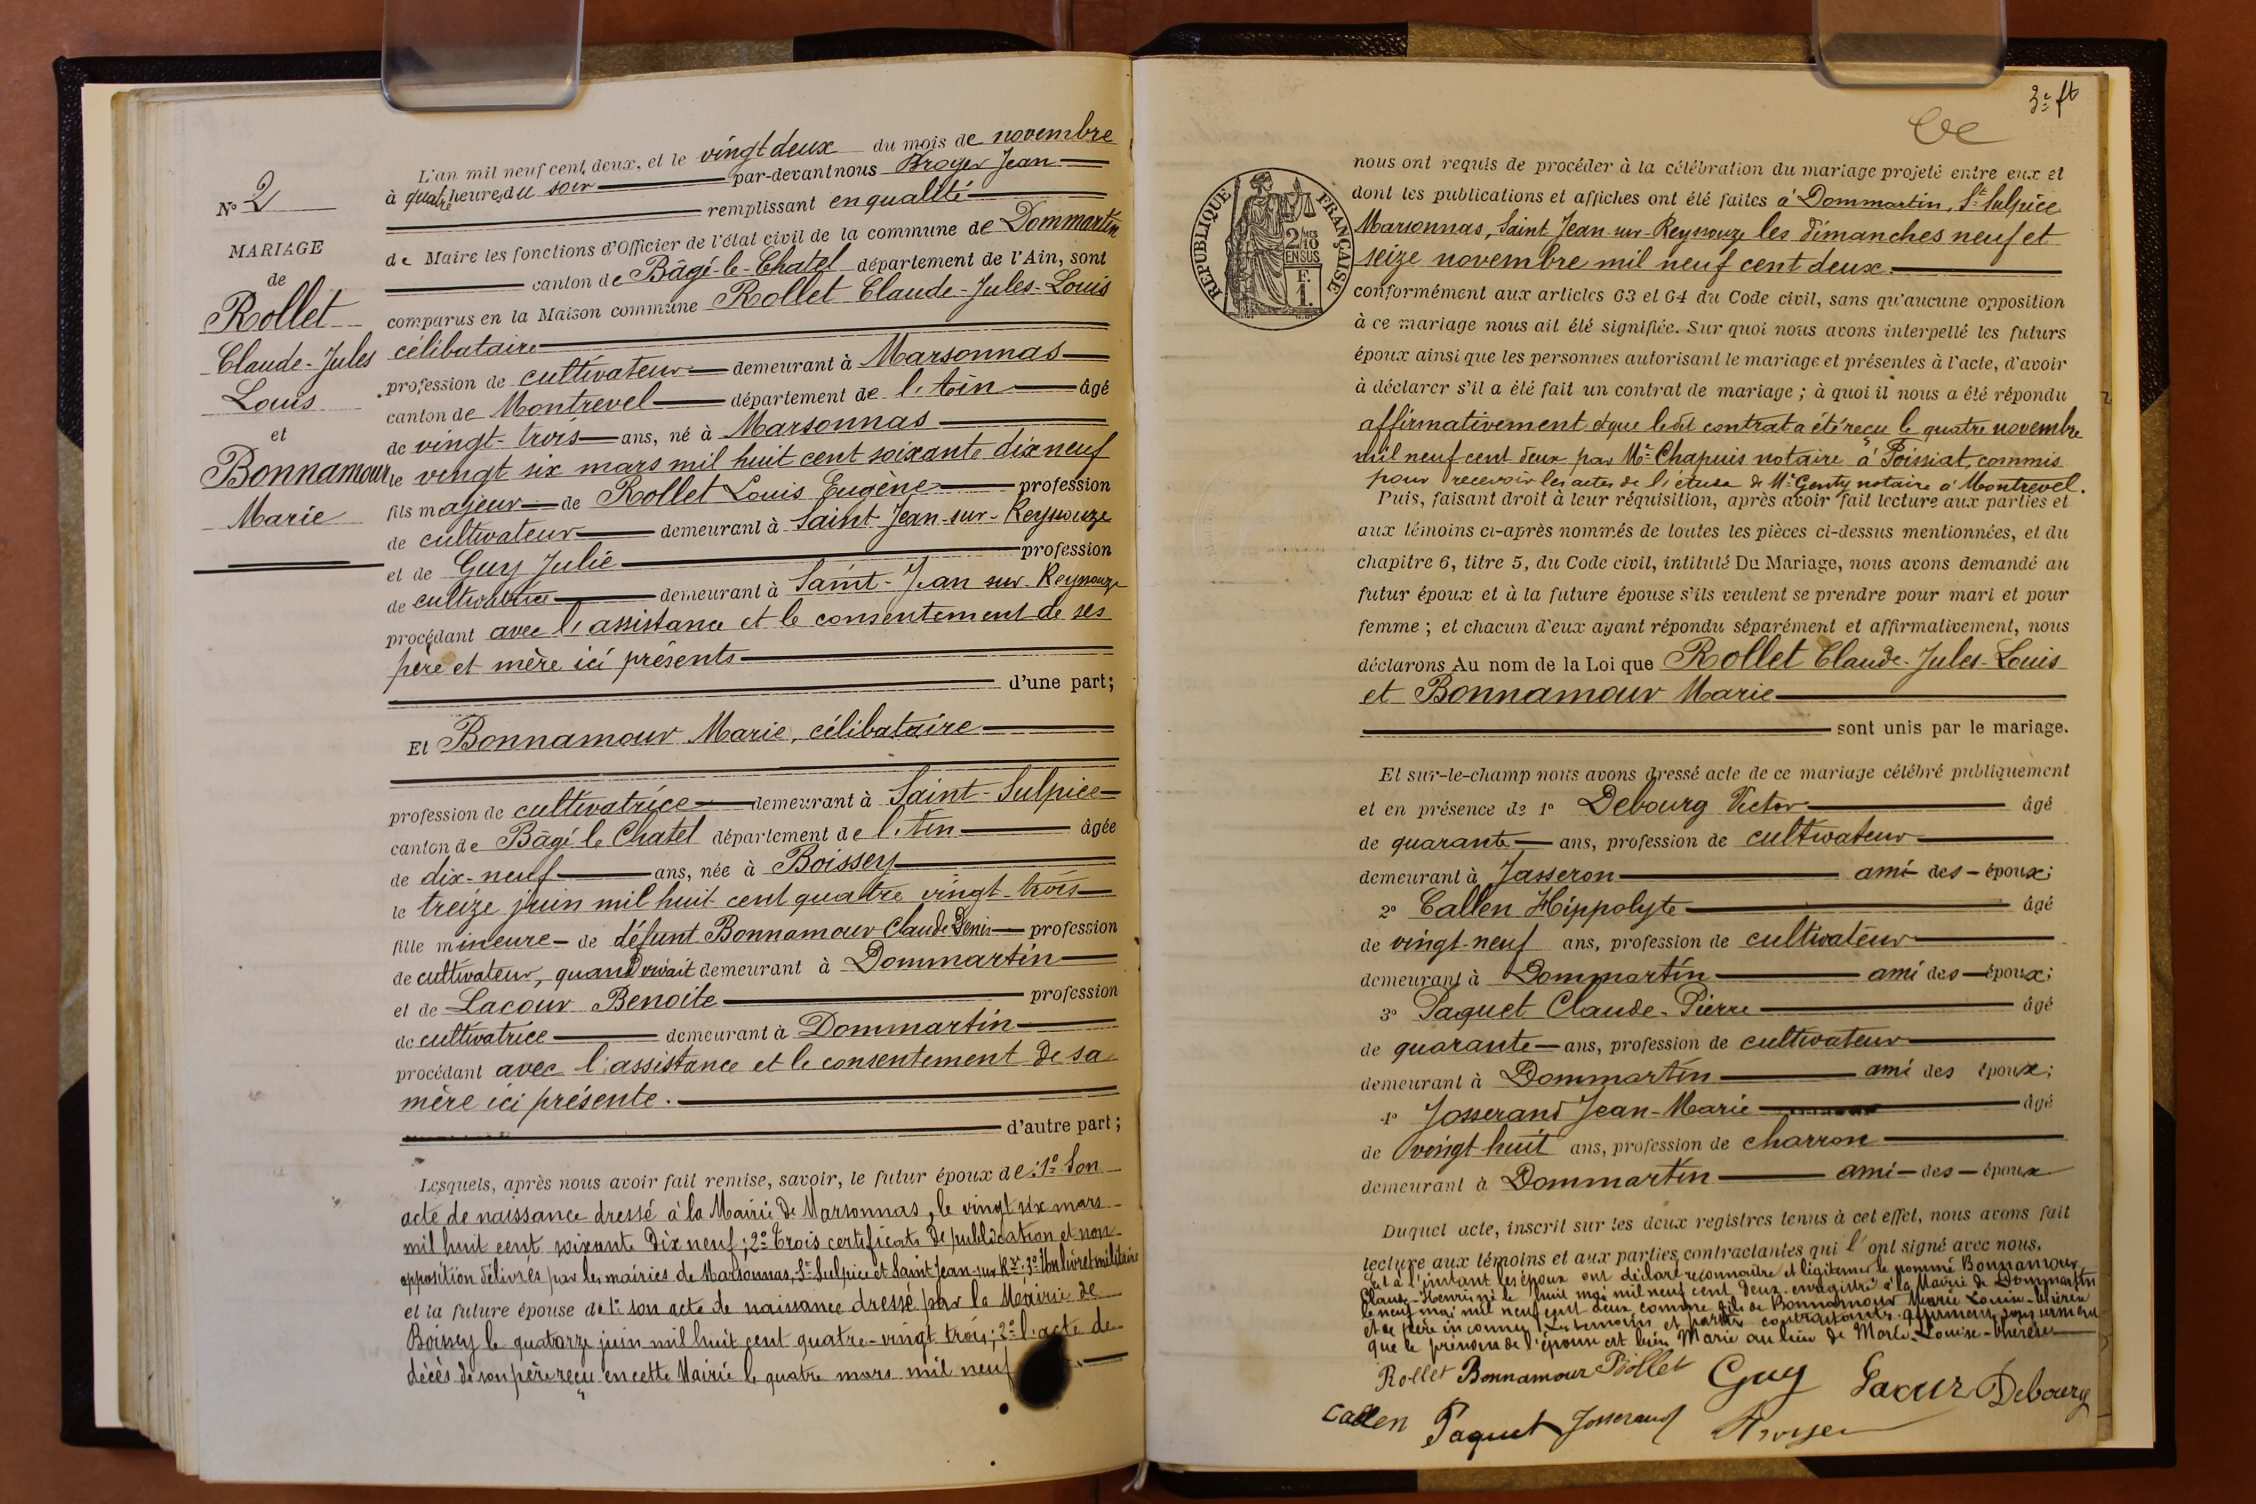 N° 2
MARIAGE
de
Rollet
Claude-Jules
Louis
et
Bonnamour
Marie
L'an mil neuf cent deux, et le vingt deux du mois de novembre
à quatre heures du soir par-devant nous Broyer Jean
remplissant en qualité
de Maire les fonctions d'Officier de l'état civil de la commune de Dommartin
canton de Bâgé-le-Chatel département de l'Ain, sont
comparus en la Maison commune Rollet Claude-Jules-Louis
célibataire
profession de cultivateur demeurant à Marsonnas
canton de Montrevel département de l'Ain âgé
de vingt-trois ans, né à Marsonnas
le vingt six mars mil huit cent soixante dix neuf
fils majeur de Rollet Louis Eugène profession
de cultivateur demeurant à Saint Jean-sur-Reyssouze
et de Guy Julie profession
de cultivatrice demeurant à Saint-Jean sur Reyssouze
procédant avec l'assistance et le consentement de ses
père et mère ici présents
d'une part;
Et Bonnamour Marie, célibataire
profession de cultivatrice demeurant à Saint-Sulpice
canton de Bâgé le Chatel département de l'Ain âgée
de dix-neuf ans, née à Boissey
le treize juin mil huit cent quatre vingt-trois
fille mineure de défunt Bonnamour Claude Denis profession
de cultivateur, quand vivait demeurant à Dommartin
et de Lacour Benoite profession
de cultivatrice demeurant à Dommartin
procédant avec l'assistance et le consentement de sa
mère ici présente.
d'autre part;
Lesquels, après nous avoir fait remise, savoir, le futur époux de: 1° Son
acte de naissance dressé à la Mairie de Marsonnas, le vingt six mars
mil huit cent soixante dix neuf; 2° Trois certificats de publication et non
opposition délivrés par les mairies de Marsonnas, St Sulpice et Saint Jean-sur Rze; 3° Un livret militaire
et la future épouse de 1° son acte de naissance dressé par la Mairie de
Boissey le quatorze juin mil huit cent quatre-vingt trois; 2° l'acte de
décès de son père reçu en cette Mairie le quatre mars mil neuf
3e ft
RÉPUBLIQUE FRANÇAISE
2/10 MES
EN SUS
F.
1.
nous ont requis de procéder à la célébration du mariage projeté entre eux et
dont les publications et affiches ont été faites à Dommartin, St Sulpice
Marsonnas, Saint Jean-sur-Reyssouze les dimanches neuf et
seize novembre mil neuf cent deux
conformément aux articles 63 et 64 du Code civil, sans qu'aucune opposition
à ce mariage nous ait été signifiée. Sur quoi nous avons interpellé les futurs
époux ainsi que les personnes autorisant le mariage et présentes à l'acte, d'avoir
à déclarer s'il a été fait un contrat de mariage; à quoi il nous a été répondu
affirmativement et que ledit contrat a été reçu le quatre novembre
mil neuf cent deux par Me Chapuis notaire à Foissiat, commis
pour recevoir les actes de l'étude de Me Genty notaire à Montrevel.
Puis, faisant droit à leur réquisition, après avoir fait lecture aux parties et
aux témoins ci-après nommés de toutes les pièces ci-dessus mentionnées, et du
chapitre 6, titre 5, du Code civil, intitulé Du Mariage, nous avons demandé au
futur époux et à la future épouse s'ils veulent se prendre pour mari et pour
femme; et chacun d'eux ayant répondu séparément et affirmativement, nous
déclarons Au nom de la Loi que Rollet Claude-Jules-Louis
et Bonnamour Marie
sont unis par le mariage.
Et sur-le-champ nous avons dressé acte de ce mariage célébré publiquement
et en présence de 1° Debourg Victor âgé
de quarante ans, profession de cultivateur
demeurant à Jasseron ami des époux;
2° Callen Hippolyte âgé
de vingt-neuf ans, profession de cultivateur
demeurant à Dommartin ami des époux;
3° Paquet Claude-Pierre âgé
de quarante ans, profession de cultivateur
demeurant à Dommartin ami des époux;
4° Josserand Jean-Marie âgé
de vingt huit ans, profession de charron
demeurant à Dommartin ami des époux
Duquel acte, inscrit sur les deux registres tenus à cet effet, nous avons fait
lecture aux témoins et aux parties contractantes qui l'ont signé avec nous.
Et à l'instant les époux ont déclaré reconnaître et légitimer le nommé Bonnamour
Claude-Henri né le huit mai mil neuf cent deux enregistré à la Mairie de Dommartin
le neuf mai mil neuf cent deux comme fils de Bonnamour Marie Louise-Thérèse
et de père inconnu. Les témoins et parties contractantes affirment sous serment
que le prénom de l'épouse est bien Marie au lieu de Marie-Louise-Thérèse
Rollet Bonnamour Rollet Guy Lacour Debourg
Callen Paquet Josserand Broyer